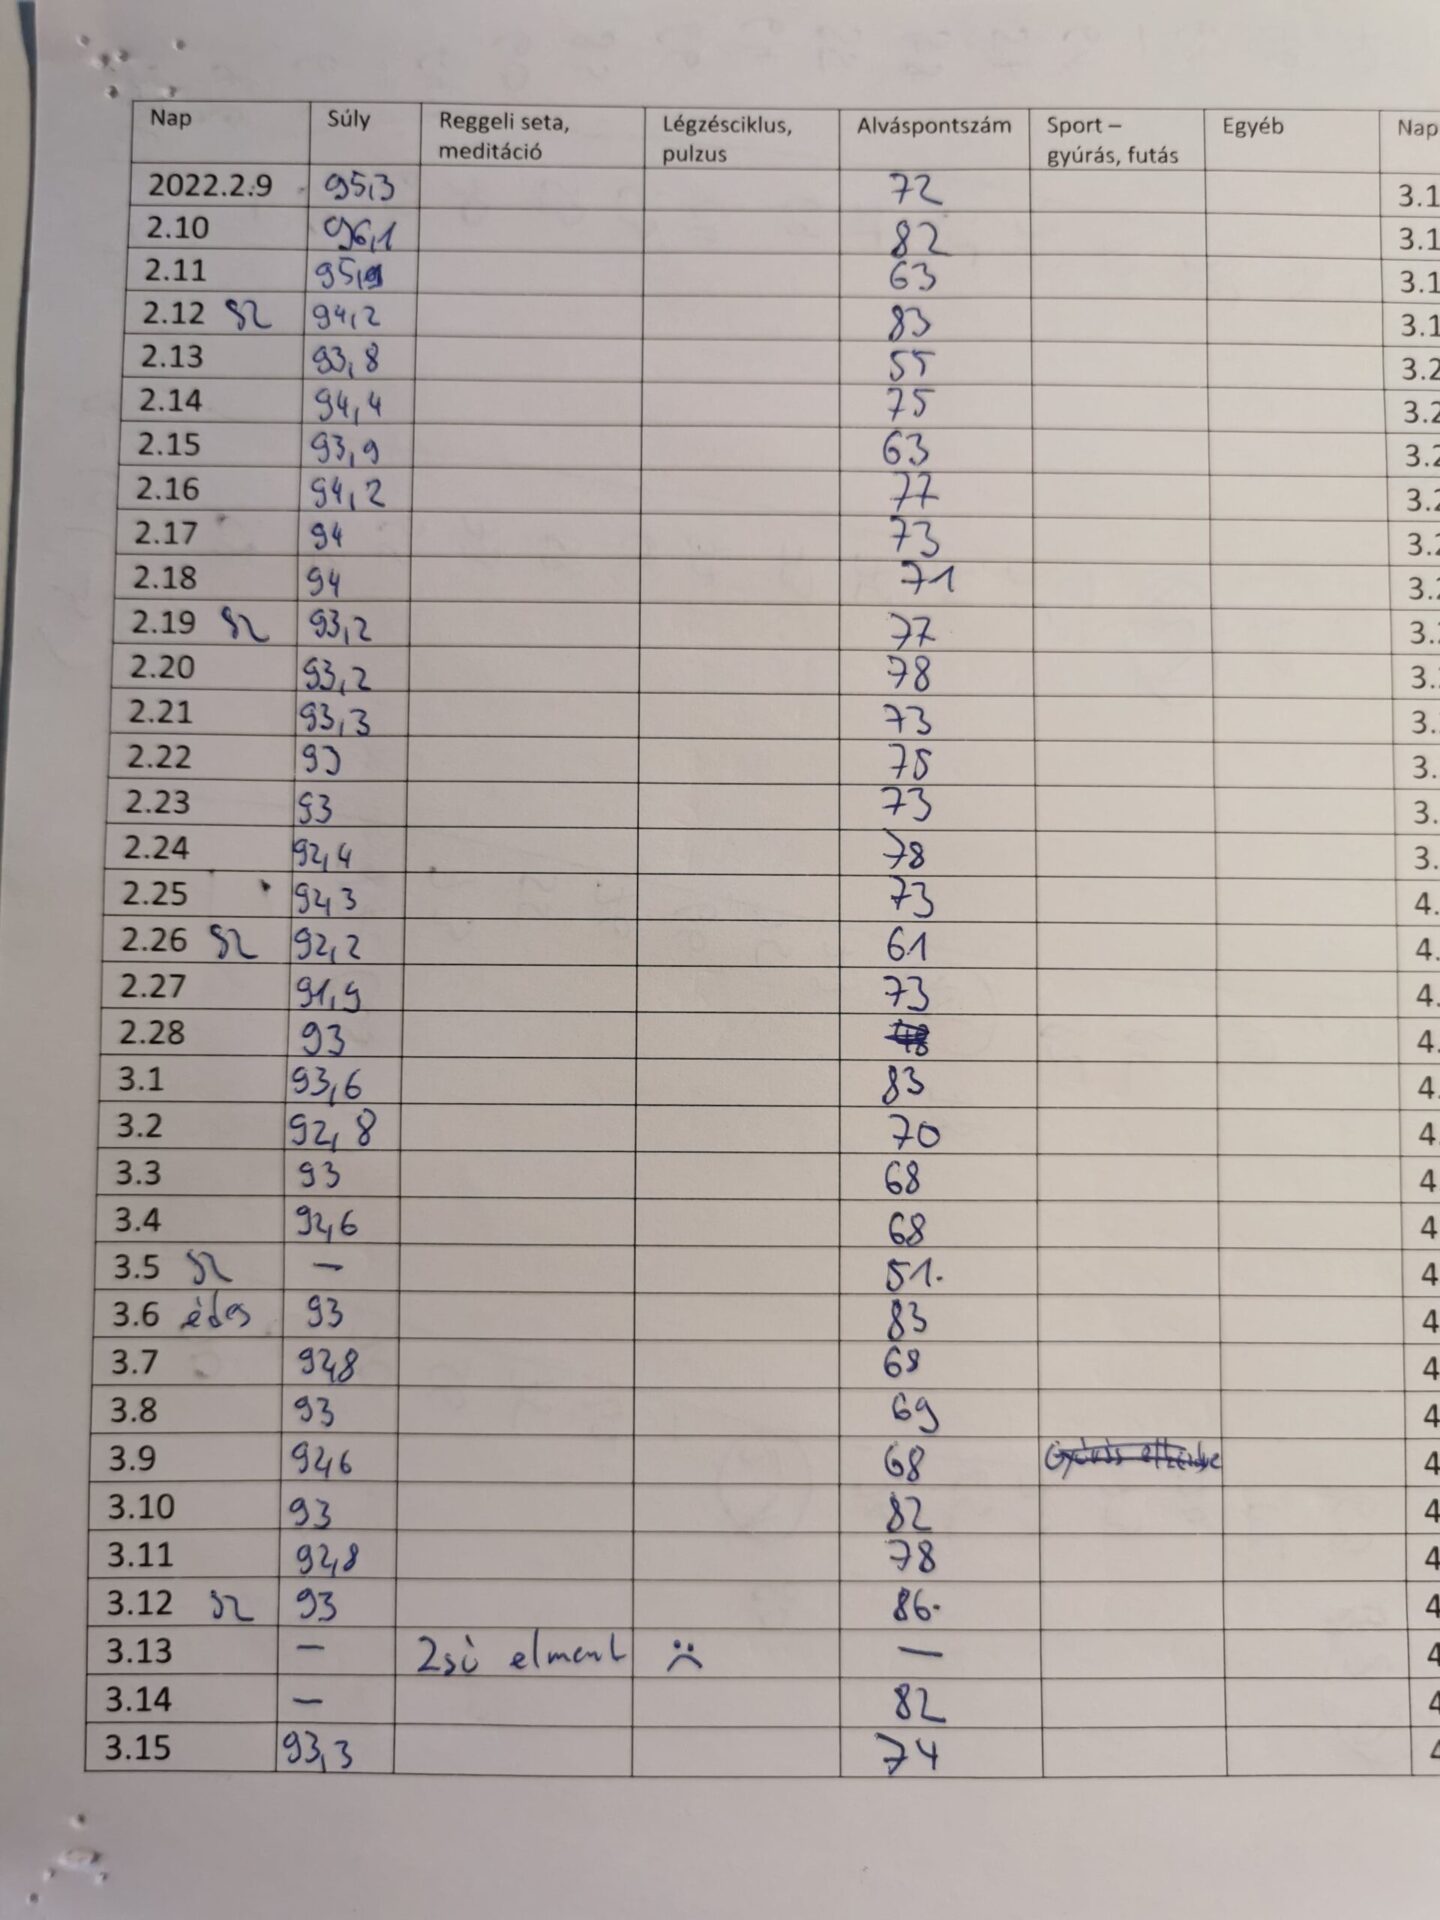 Nap Súly Reggeli seta, meditáció Légzésciklus, pulzus Alváspontszám Sport – gyúrás, futás Egyéb Nap
2022.2.9 95,3 72 3.1
2.10 96,1 82 3.1
2.11 95,9 63 3.1
2.12 SZ 94,2 83 3.1
2.13 93,8 55 3.2
2.14 94,4 75 3.2
2.15 93,9 63 3.2
2.16 94,2 77 3.2
2.17 94 73 3.2
2.18 94 71 3.2
2.19 SZ 93,2 77 3.
2.20 93,2 78 3.
2.21 93,3 73 3.
2.22 93 75 3.
2.23 93 73 3.
2.24 92,4 78 3.
2.25 92,3 73 4.
2.26 SZ 92,2 61 4.
2.27 91,9 73 4.
2.28 93 4.
3.1 93,6 83 4.
3.2 92,8 70 4.
3.3 93 68 4
3.4 92,6 68 4
3.5 SZ – 51. 4
3.6 édes 93 83 4
3.7 92,8 68 4
3.8 93 69 4
3.9 92,6 68 4
3.10 93 82 4
3.11 92,8 78 4
3.12 SZ 93 86. 4
3.13 – Zsú elment – 4
3.14 – 82 4
3.15 93,3 74 4